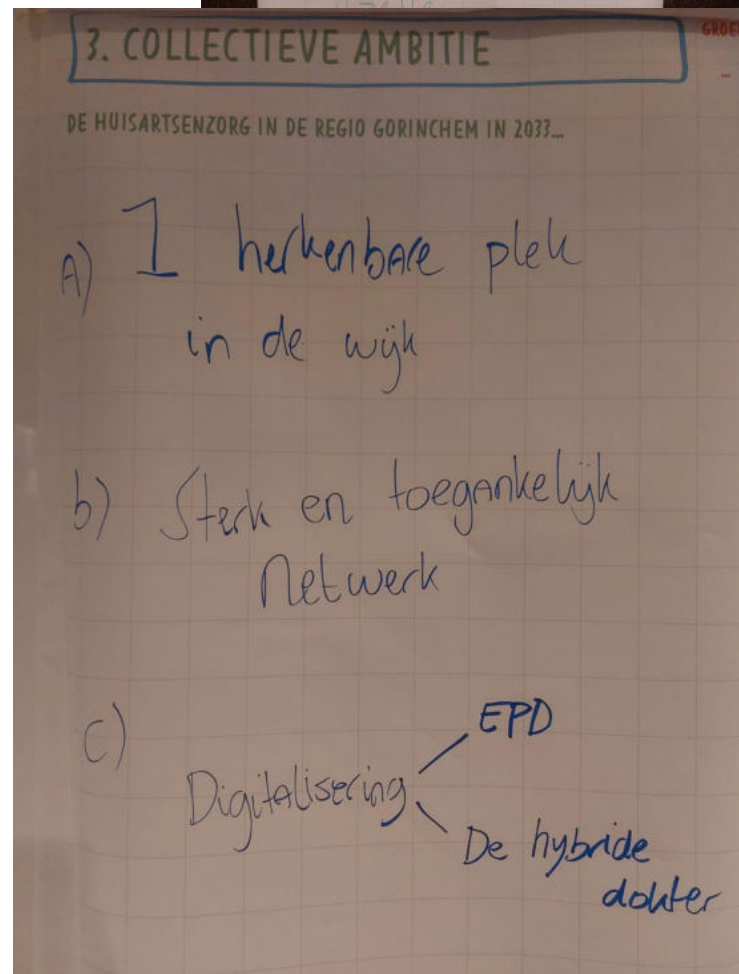 3. COLLECTIEVE AMBITIE
DE HUISARTSENZORG IN DE REGIO GORINCHEM IN 2033...
A) 1 herkenbare plek
in de wijk
b) Sterk en toegankelijk
Netwerk
c)
EPD
Digitalisering
De hybride
dokter